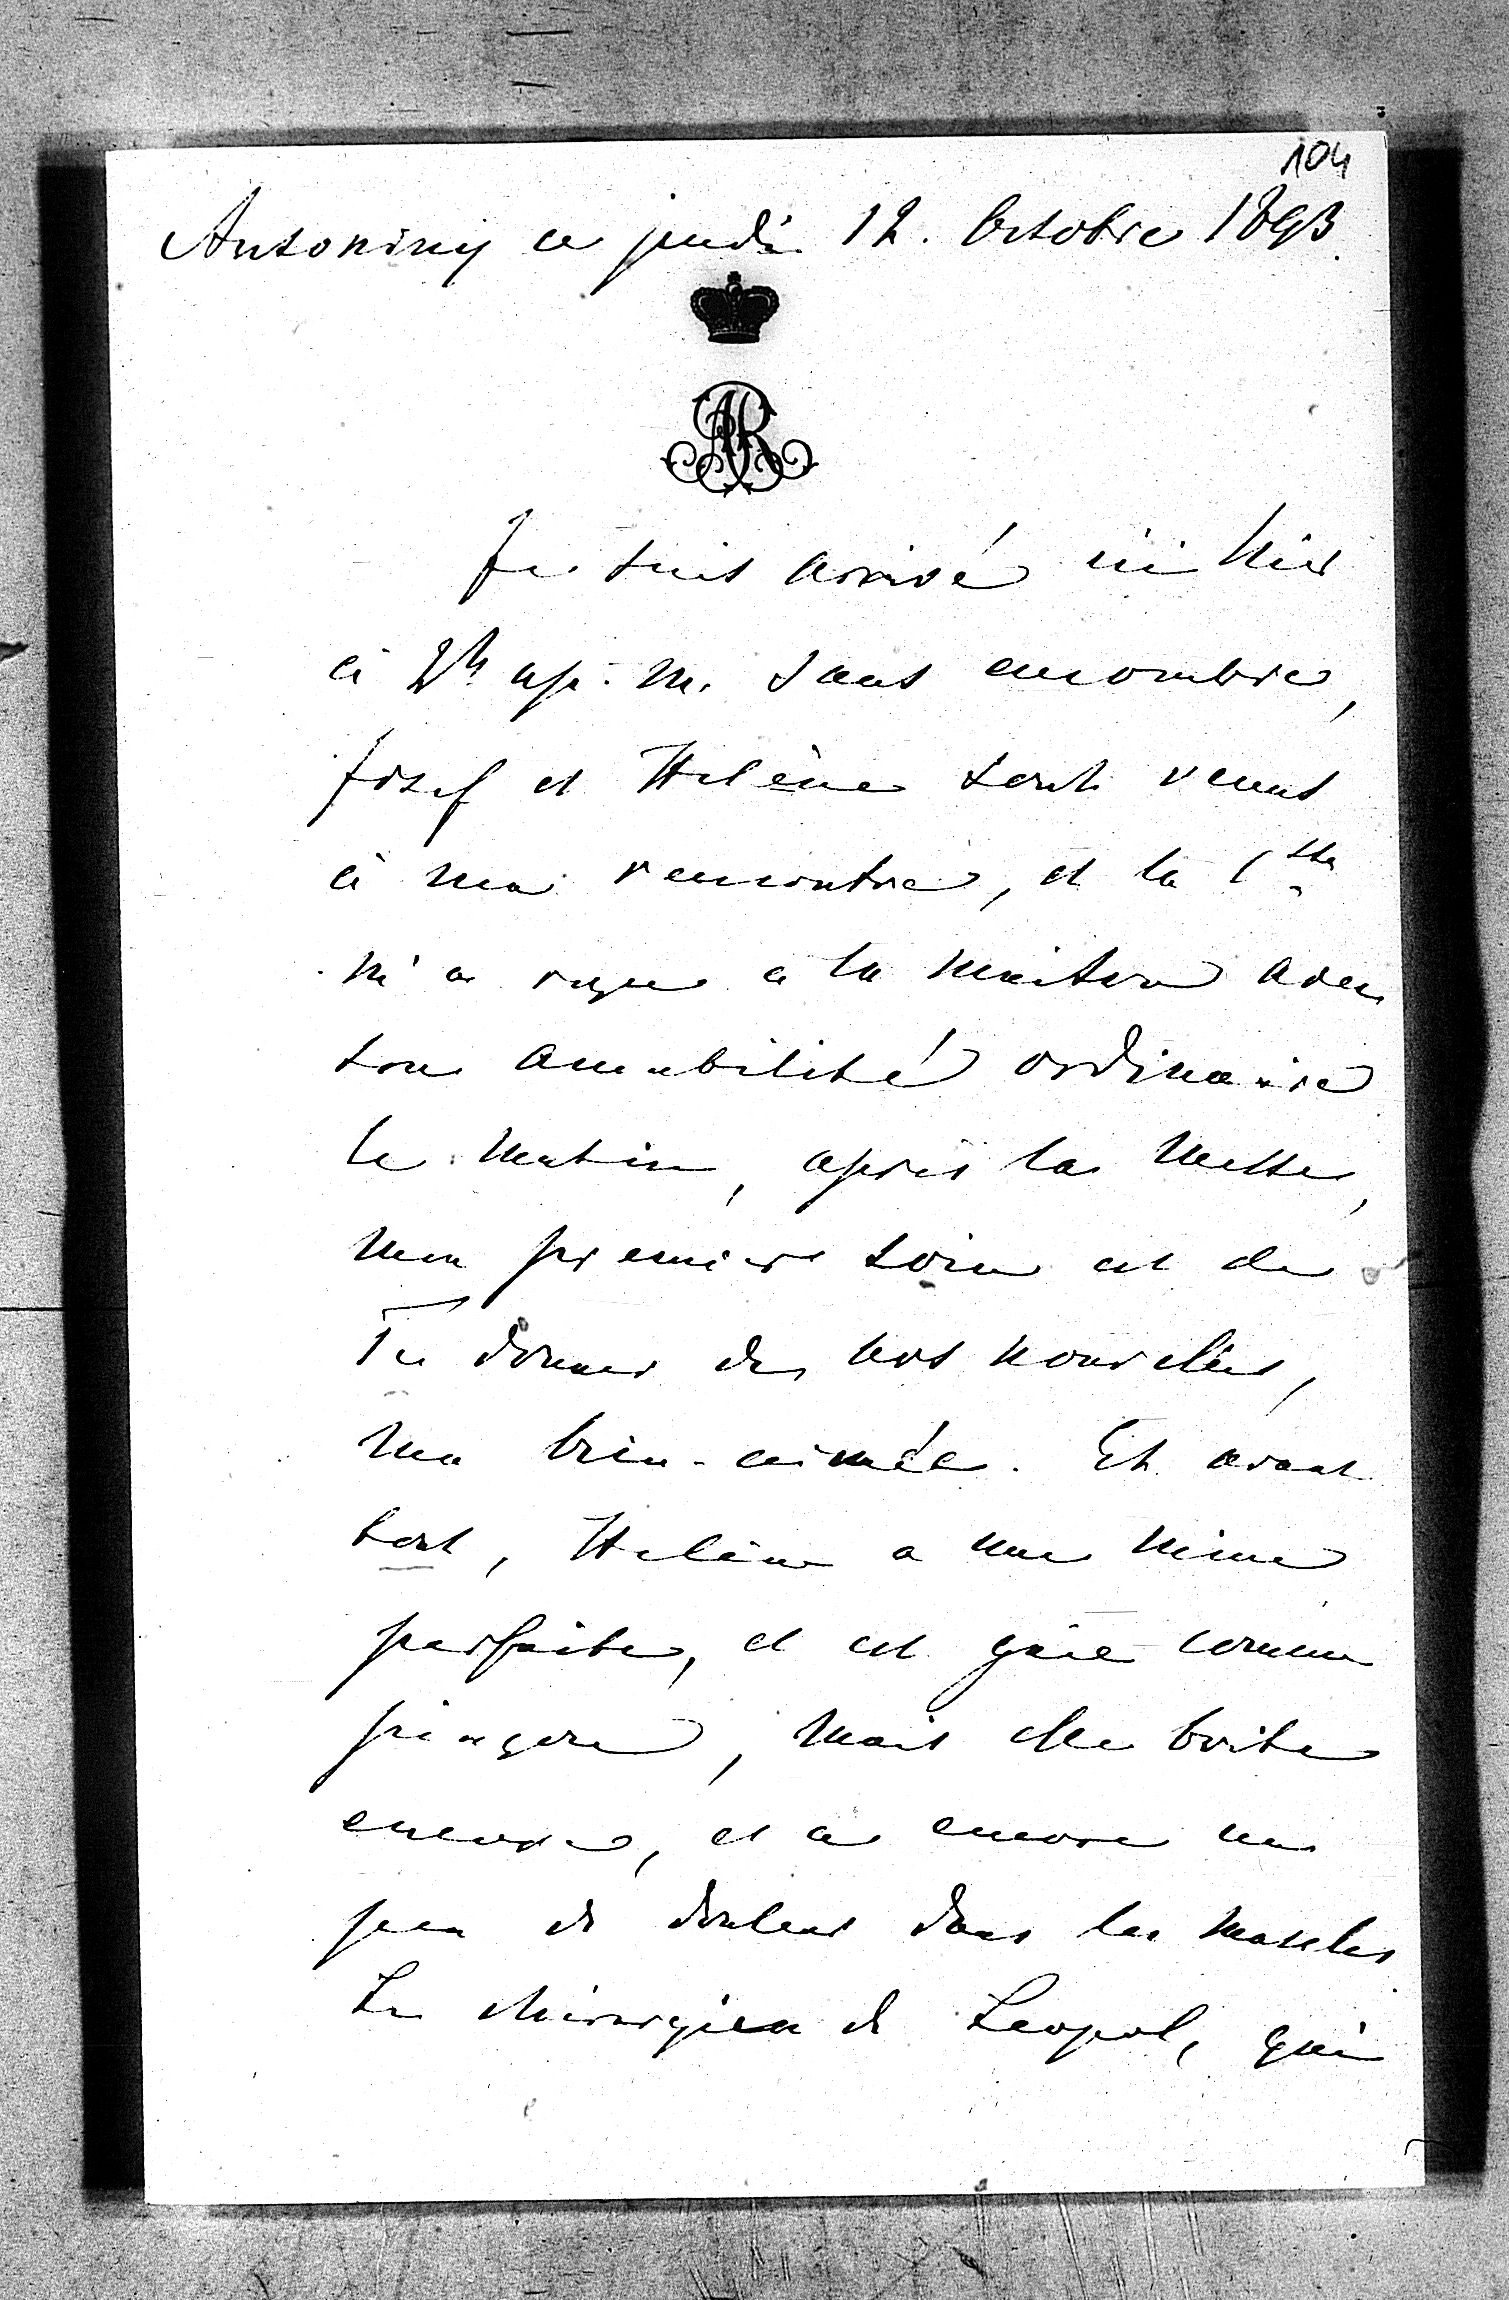 104
Antoniny ce jeudi 12. Octobre 1893.
AR
Je suis arrivé ici hier
à 2h ap. m. sans encombre,
Josef et Hélène sont venus
à ma rencontre, et la Ctsse
m'a reçu à la maison avec
son amabilité ordinaire
Ce matin, après la Messe,
mon premier soin est de
Te donner de nos nouvelles,
ma bien-aimée. Et avant
tout, Hélène a une mine
parfaite, et est gaie comme
pinçon, mais elle boite
encore, et a encore un
peu de douleur dans les muscles
Le chirurgien de Leopol, qui